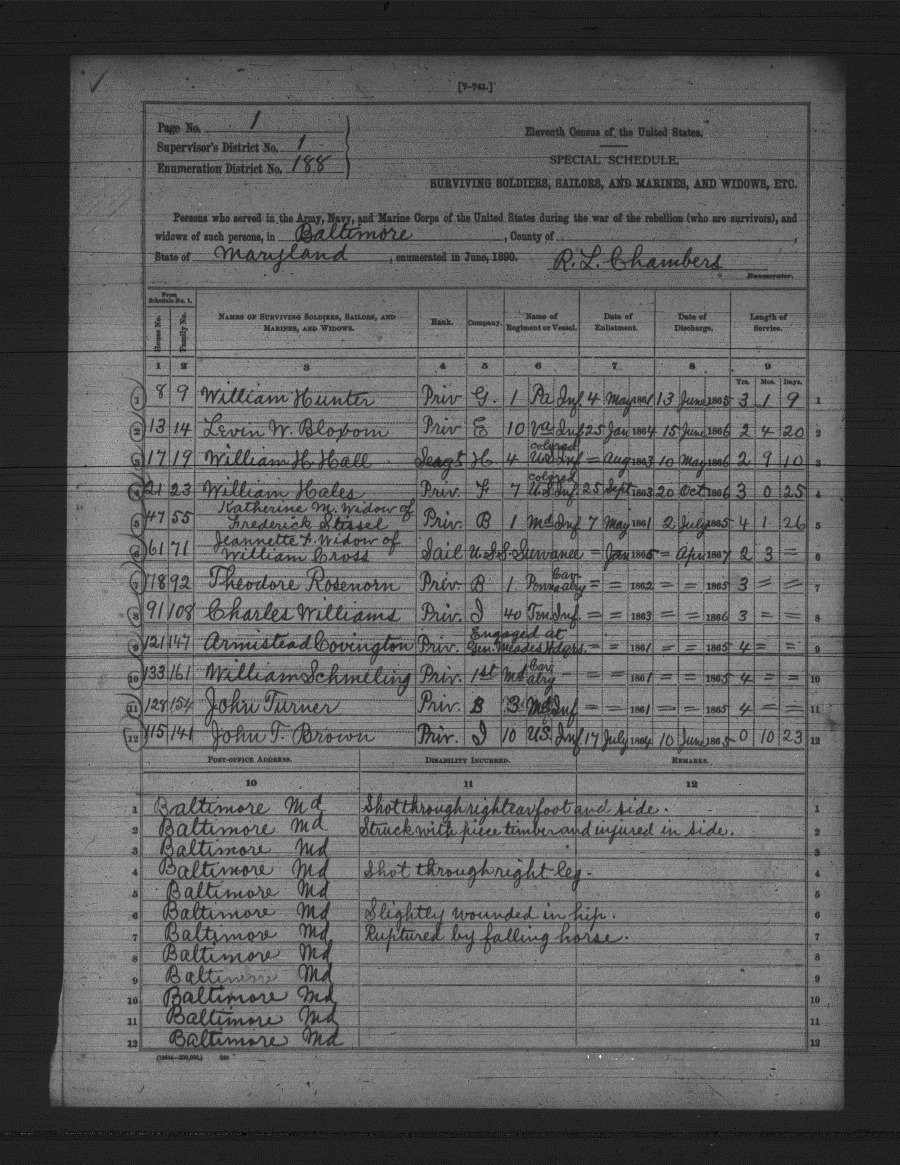 ✓
[7-741.]
Page No. 1
Supervisor's District No. 1
Enumeration District No. 188
Eleventh Census of the United States.
SPECIAL SCHEDULE.
SURVIVING SOLDIERS, SAILORS, AND MARINES, AND WIDOWS, ETC.
Persons who served in the Army, Navy, and Marine Corps of the United States during the war of the rebellion (who are survivors), and
widows of such persons, in Baltimore, County of ,
State of Maryland, enumerated in June, 1890. R. L. Chambers
Enumerator.
From Schedule No. 1.
House No. Family No. NAMES OF SURVIVING SOLDIERS, SAILORS, AND MARINES, AND WIDOWS. Rank. Company. Name of Regiment or Vessel. Date of Enlistment. Date of Discharge. Length of Service.
1 2 3 4 5 6 7 8 9
Yrs. Mos. Days.
1 8 9 William Hunter Priv G. 1 Pa Inf 4 May 1861 13 June 1865 3 1 9 1
2 13 14 Levin W. Bloxom Priv E 10 Va Inf 25 Jan 1864 15 June 1866 2 4 20 2
3 17 19 William H. Hall Seagt H. 4 colored U.S. Inf = Aug 1863 10 May 1866 2 9 10 3
4 21 23 William Hales Priv. F 7 colored U.S. Inf. 25 Sept 1863 20 Oct 1866 3 0 25 4
Katherine M. Widow of
5 47 55 Frederick Stissel Priv. B 1 Md Inf 7 May 1861 2 July 1865 4 1 26 5
Jeannette F. Widow of
6 61 71 William Cross Sail U.S.S. Suwanee = Jan 1865 = Apr 1867 2 3 = 6
7 78 92 Theodore Rosenorn Priv. B 1. Penna Cavalry = = 1862 = = 1865 3 = = 7
8 91 108 Charles Williams Priv. I 40 Ten. Inf. = = 1863 = = 1866 3 = = 8
9 121 147 Armistead Covington Priv. Engaged at Gen. Meades Hdqrs. = = 1861 = = 1865 4 = = 9
10 133 161 William Schmeling Priv. 1st Md Cavalry = = 1861 = = 1865 4 = = 10
11 128 154 John Turner Priv. B 3 Md Inf = = 1861 = = 1865 4 = = 11
12 115 141 John T. Brown Priv. I 10 U.S. Inf 17 July 1864 10 June 1865 0 10 23 12
POST-OFFICE ADDRESS. DISABILITY INCURRED. REMARKS.
10 11 12
1 Baltimore Md Shot through right foot and side. 1
2 Baltimore Md Struck with piece timber and injured in side. 2
3 Baltimore Md 3
4 Baltimore Md Shot through right leg. 4
5 Baltimore Md 5
6 Baltimore Md Slightly wounded in hip. 6
7 Baltimore Md Ruptured by falling horse. 7
8 Baltimore Md 8
9 Baltimore Md 9
10 Baltimore Md 10
11 Baltimore Md 11
12 Baltimore Md 12